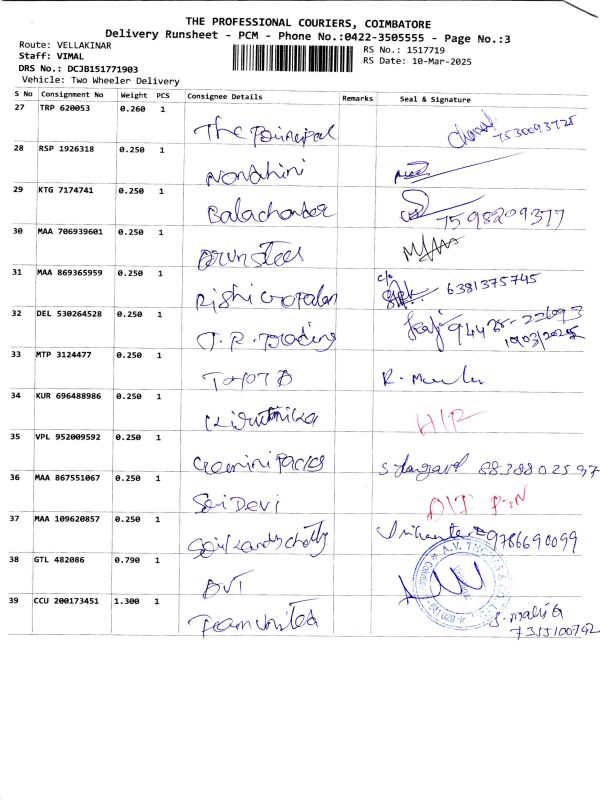 THE PROFESSIONAL COURIERS, COIMBATORE
Delivery Runsheet - PCM - Phone No.:0422-3505555 - Page No.:3
Route: VELLAKINAR
Staff: VIMAL
DRS No.: DCJB151771903
Vehicle: Two Wheeler Delivery
RS No.: 1517719
RS Date: 10-Mar-2025
S No Consignment No Weight PCS Consignee Details Remarks Seal & Signature
27 TRP 620053 0.260 1
The Principal 7530093725
28 RSP 1926318 0.250 1
Nandhini
29 KTG 7174741 0.250 1
Balachander 7598209377
30 MAA 706939601 0.250 1
Arun steel
31 MAA 869365959 0.250 1
Rishi Gopalan c/o 6381375745
32 DEL 530264528 0.250 1
J. R. Trading 94425-22693
10/03/2025
33 MTP 3124477 0.250 1
TOYOTA
34 KUR 696488986 0.250 1
Kiruthika
35 VPL 952009592 0.250 1
Gemini Packs 8838802597
36 MAA 867551067 0.250 1
Sri Devi
37 MAA 109620857 0.250 1
9786690099
38 GTL 482086 0.790 1
AVT
39 CCU 200173451 1.300 1
Team United